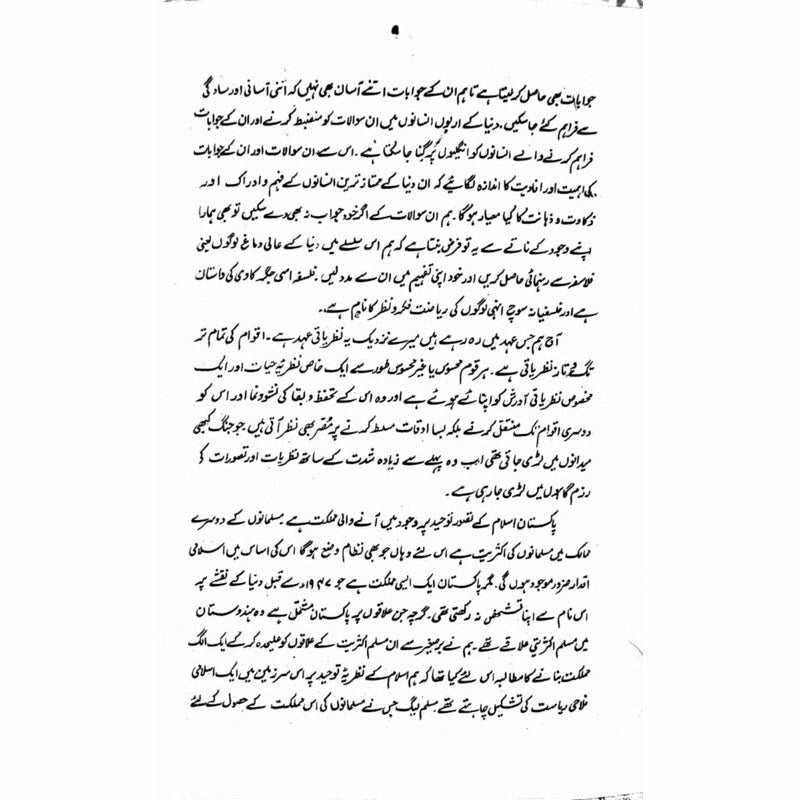 ۹
جوابات بھی حاصل کر لیتا ہے تاہم ان کے جوابات اتنے آسان بھی نہیں کہ اتنی آسانی اور سادگی
سے فراہم کئے جا سکیں۔ دنیا کے اربوں انسانوں میں ان سوالات کو منضبط کرنے اور ان کے جوابات
فراہم کرنے والے انسانوں کو انگلیوں پر گنا جا سکتا ہے۔ اس سے ان سوالات اور ان کے جوابات
کی اہمیت اور افادیت کا اندازہ لگائیے کہ ان دنیا کے ممتاز ترین انسانوں کے فہم و ادراک اور
ذکاوت و ذہانت کا کیا معیار ہوگا۔ ہم ان سوالات کے اگر خود جواب نہ بھی دے سکیں تو بھی ہمارا
اپنے وجود کے ناتے سے یہ تو فرض بنتا ہے کہ ہم اس سلسلے میں دنیا کے عالی دماغ لوگوں یعنی
فلاسفہ سے رہنمائی حاصل کریں اور خود اپنی تفہیم میں ان سے مدد لیں۔ فلسفہ اسی جگر کاوی کی داستان
ہے اور فلسفیانہ سوچ انہی لوگوں کی ریاضت فکر و نظر کا نام ہے۔
آج ہم جس عہد میں رہ رہے ہیں میرے نزدیک یہ نظریاتی عہد ہے۔ اقوام کی تمام تر
تگ و تاز نظریاتی ہے۔ ہر قوم محسوس یا غیر محسوس طور سے ایک خاص نظریۂ حیات اور ایک
مخصوص نظریاتی آدرش کو اپنائے ہوئے ہے اور وہ اس کے تحفظ و بقا کی نشوونما اور اس کو
دوسری اقوام تک منتقل کرنے بلکہ بسا اوقات مسلط کرنے پر مُصر بھی نظر آتی ہیں جو جنگ کبھی
میدانوں میں لڑی جاتی تھی اب وہ پہلے سے زیادہ شدت کے ساتھ نظریات اور تصورات کی
رزم گاہوں میں لڑی جا رہی ہے۔
پاکستان اسلام کے تصور توحید پر وجود میں آنے والی مملکت ہے۔ مسلمانوں کے دوسرے
ممالک میں مسلمانوں کی اکثریت ہے اس لئے وہاں جو بھی نظام وضع ہوگا اس کی اساس میں اسلامی
اقدار ضرور موجود ہوں گی۔ مگر پاکستان ایک ایسی مملکت ہے جو ۱۹۴۷ء سے قبل دنیا کے نقشے پر
اس نام سے اپنا تشخص نہ رکھتی تھی۔ گرچہ جن علاقوں پر پاکستان مشتمل ہے وہ ہندوستان
میں مسلم اکثریتی علاقے تھے۔ ہم نے برصغیر سے ان مسلم اکثریت کے علاقوں کو علیحدہ کر کے ایک الگ
مملکت بنانے کا مطالبہ اس لئے کیا تھا کہ ہم اسلام کے نظریۂ توحید پر اس سرزمین میں ایک اسلامی
فلاحی ریاست کی تشکیل چاہتے تھے مسلم لیگ جس نے مسلمانوں کی اس مملکت کے حصول کے لئے